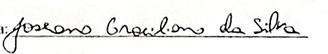 : Joseano Graciliano da Silva